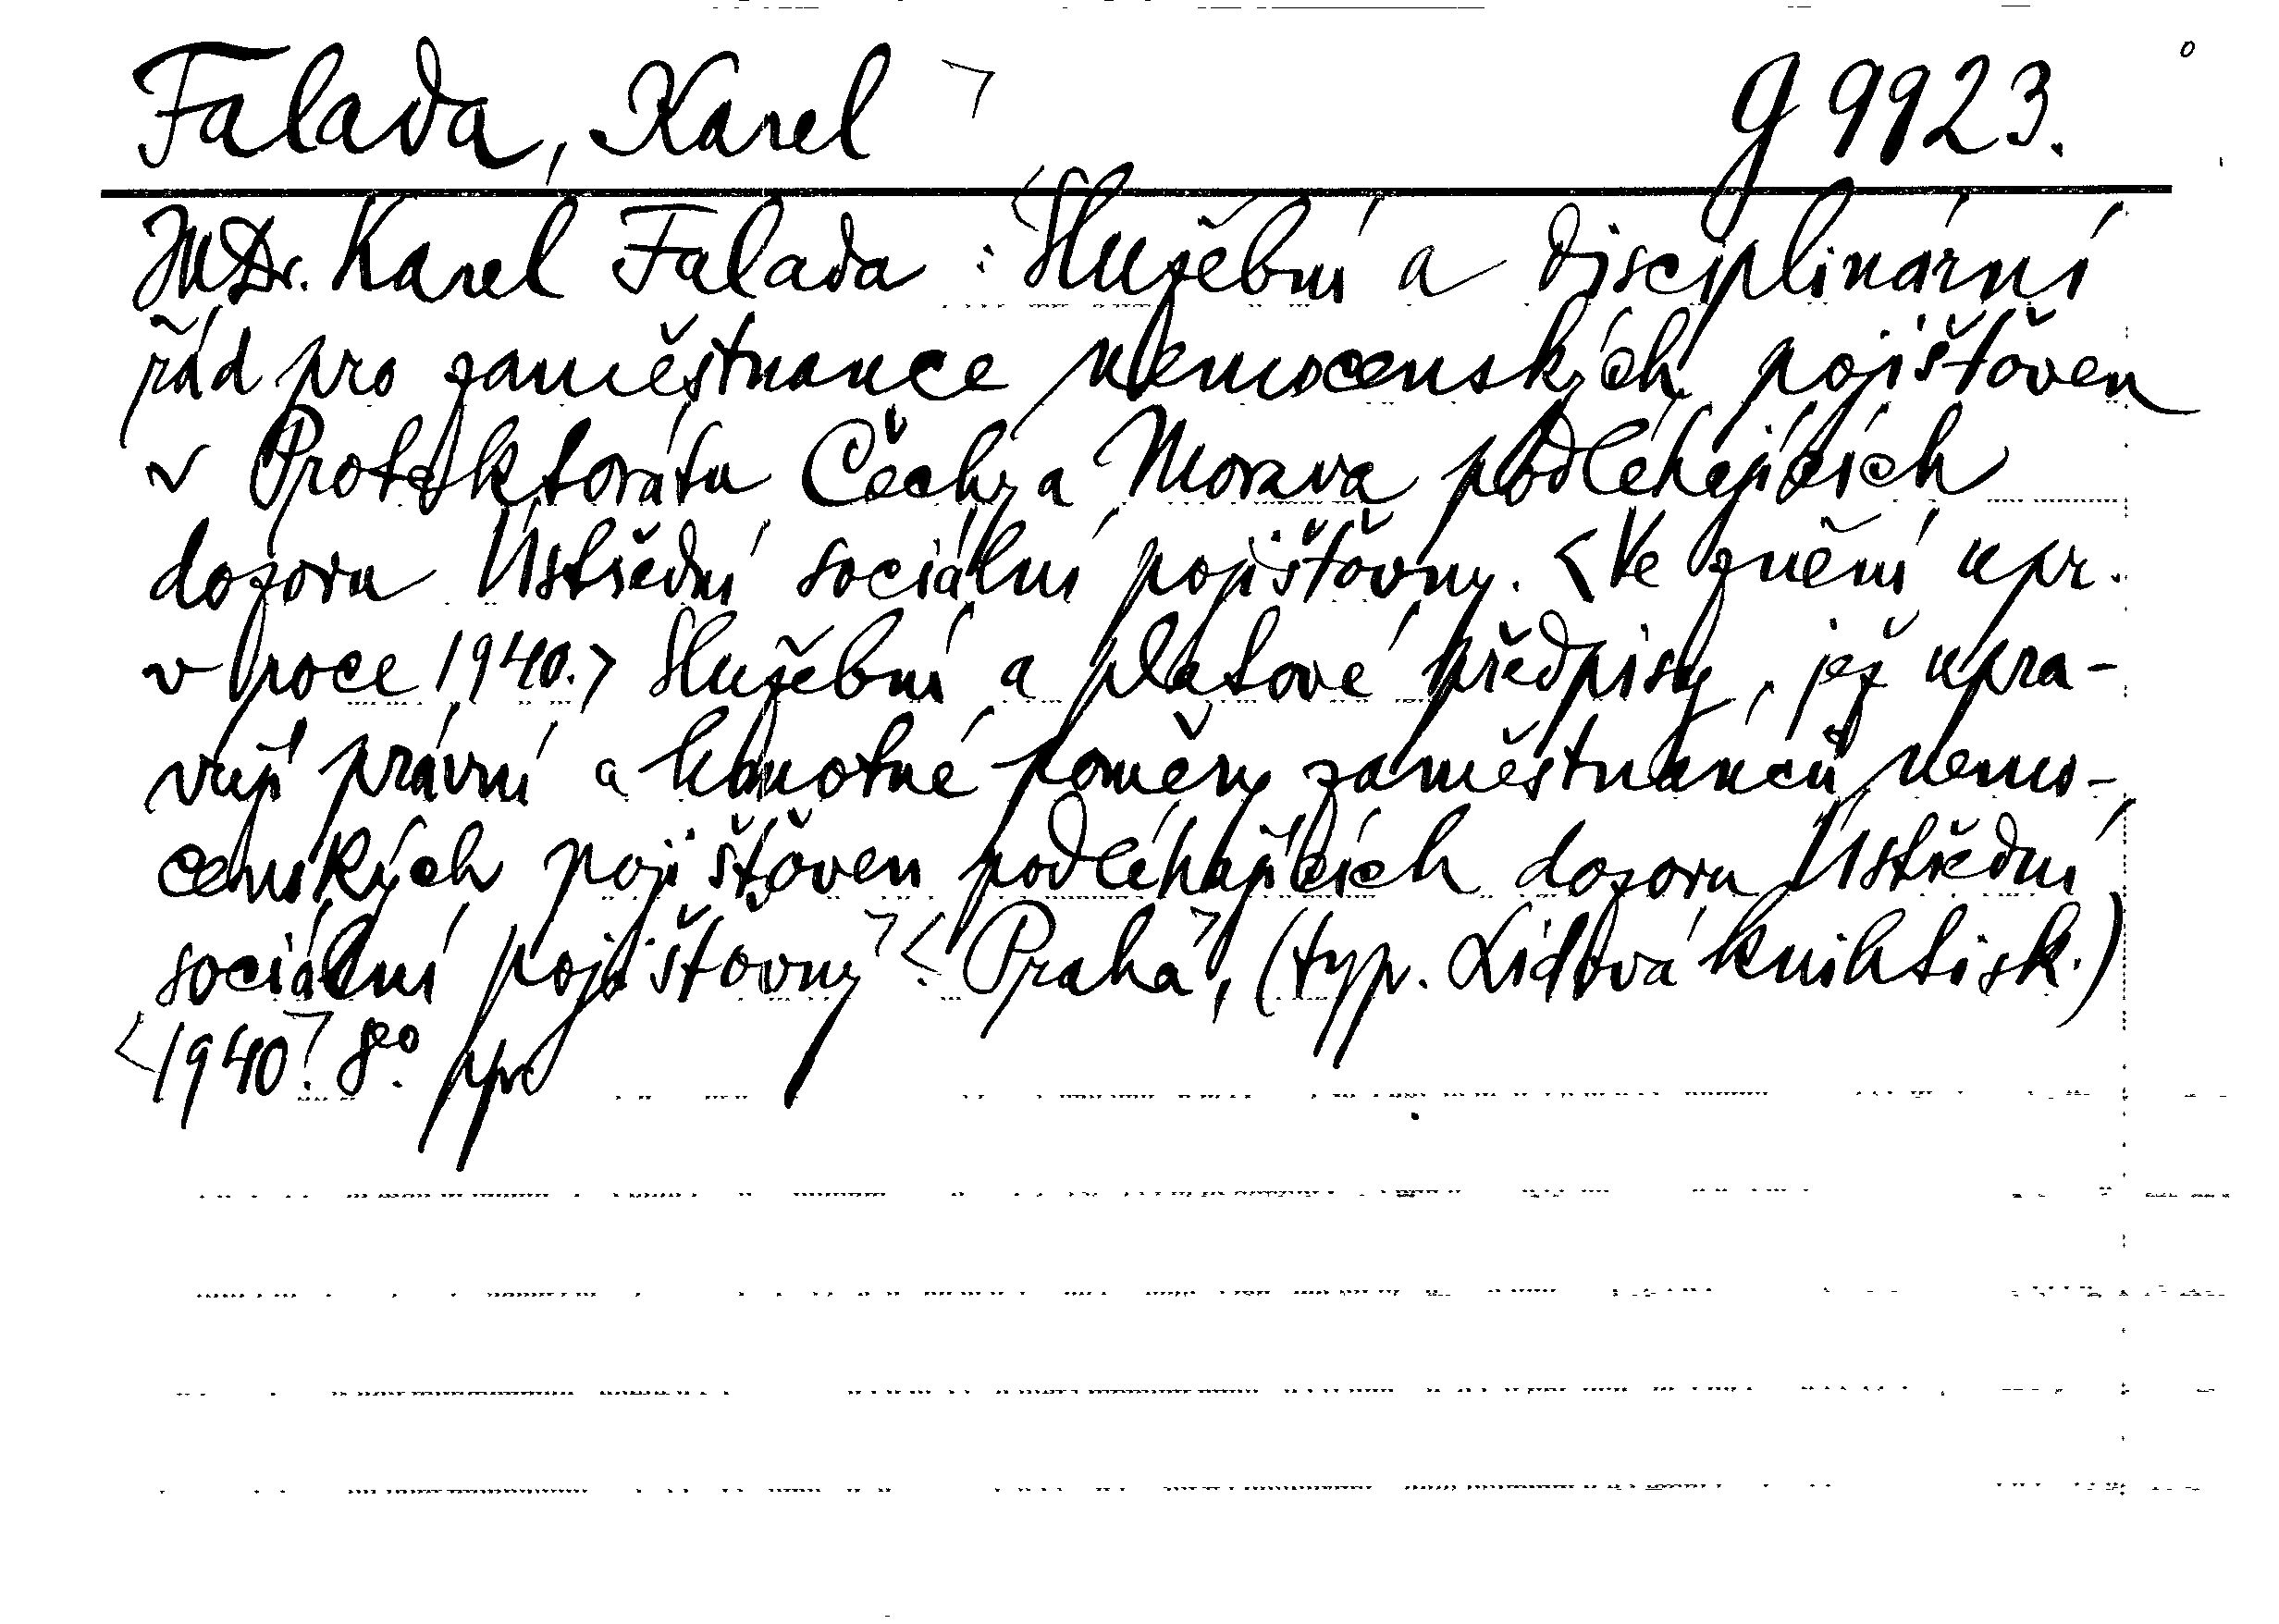 Falada, Karel ˥ g 9923.
JUDr. Karel Falada : <Služební a disciplinární
řád pro zaměstnance nemocenských pojišťoven
v Protektorátu Čechy a Morava podléhajících
dozoru Ústřední sociální pojišťovny. <Ve znění upr.
v roce 1940.> Služební a platové předpisy, jež upra-
vují právní a hmotné poměry zaměstnanců nemo-
cenských pojišťoven podléhajících dozoru Ústřední
sociální pojišťovny ˥ < Praha ˥, (typ. Lidová knihtisk.)
<1940 ˥. 8°.